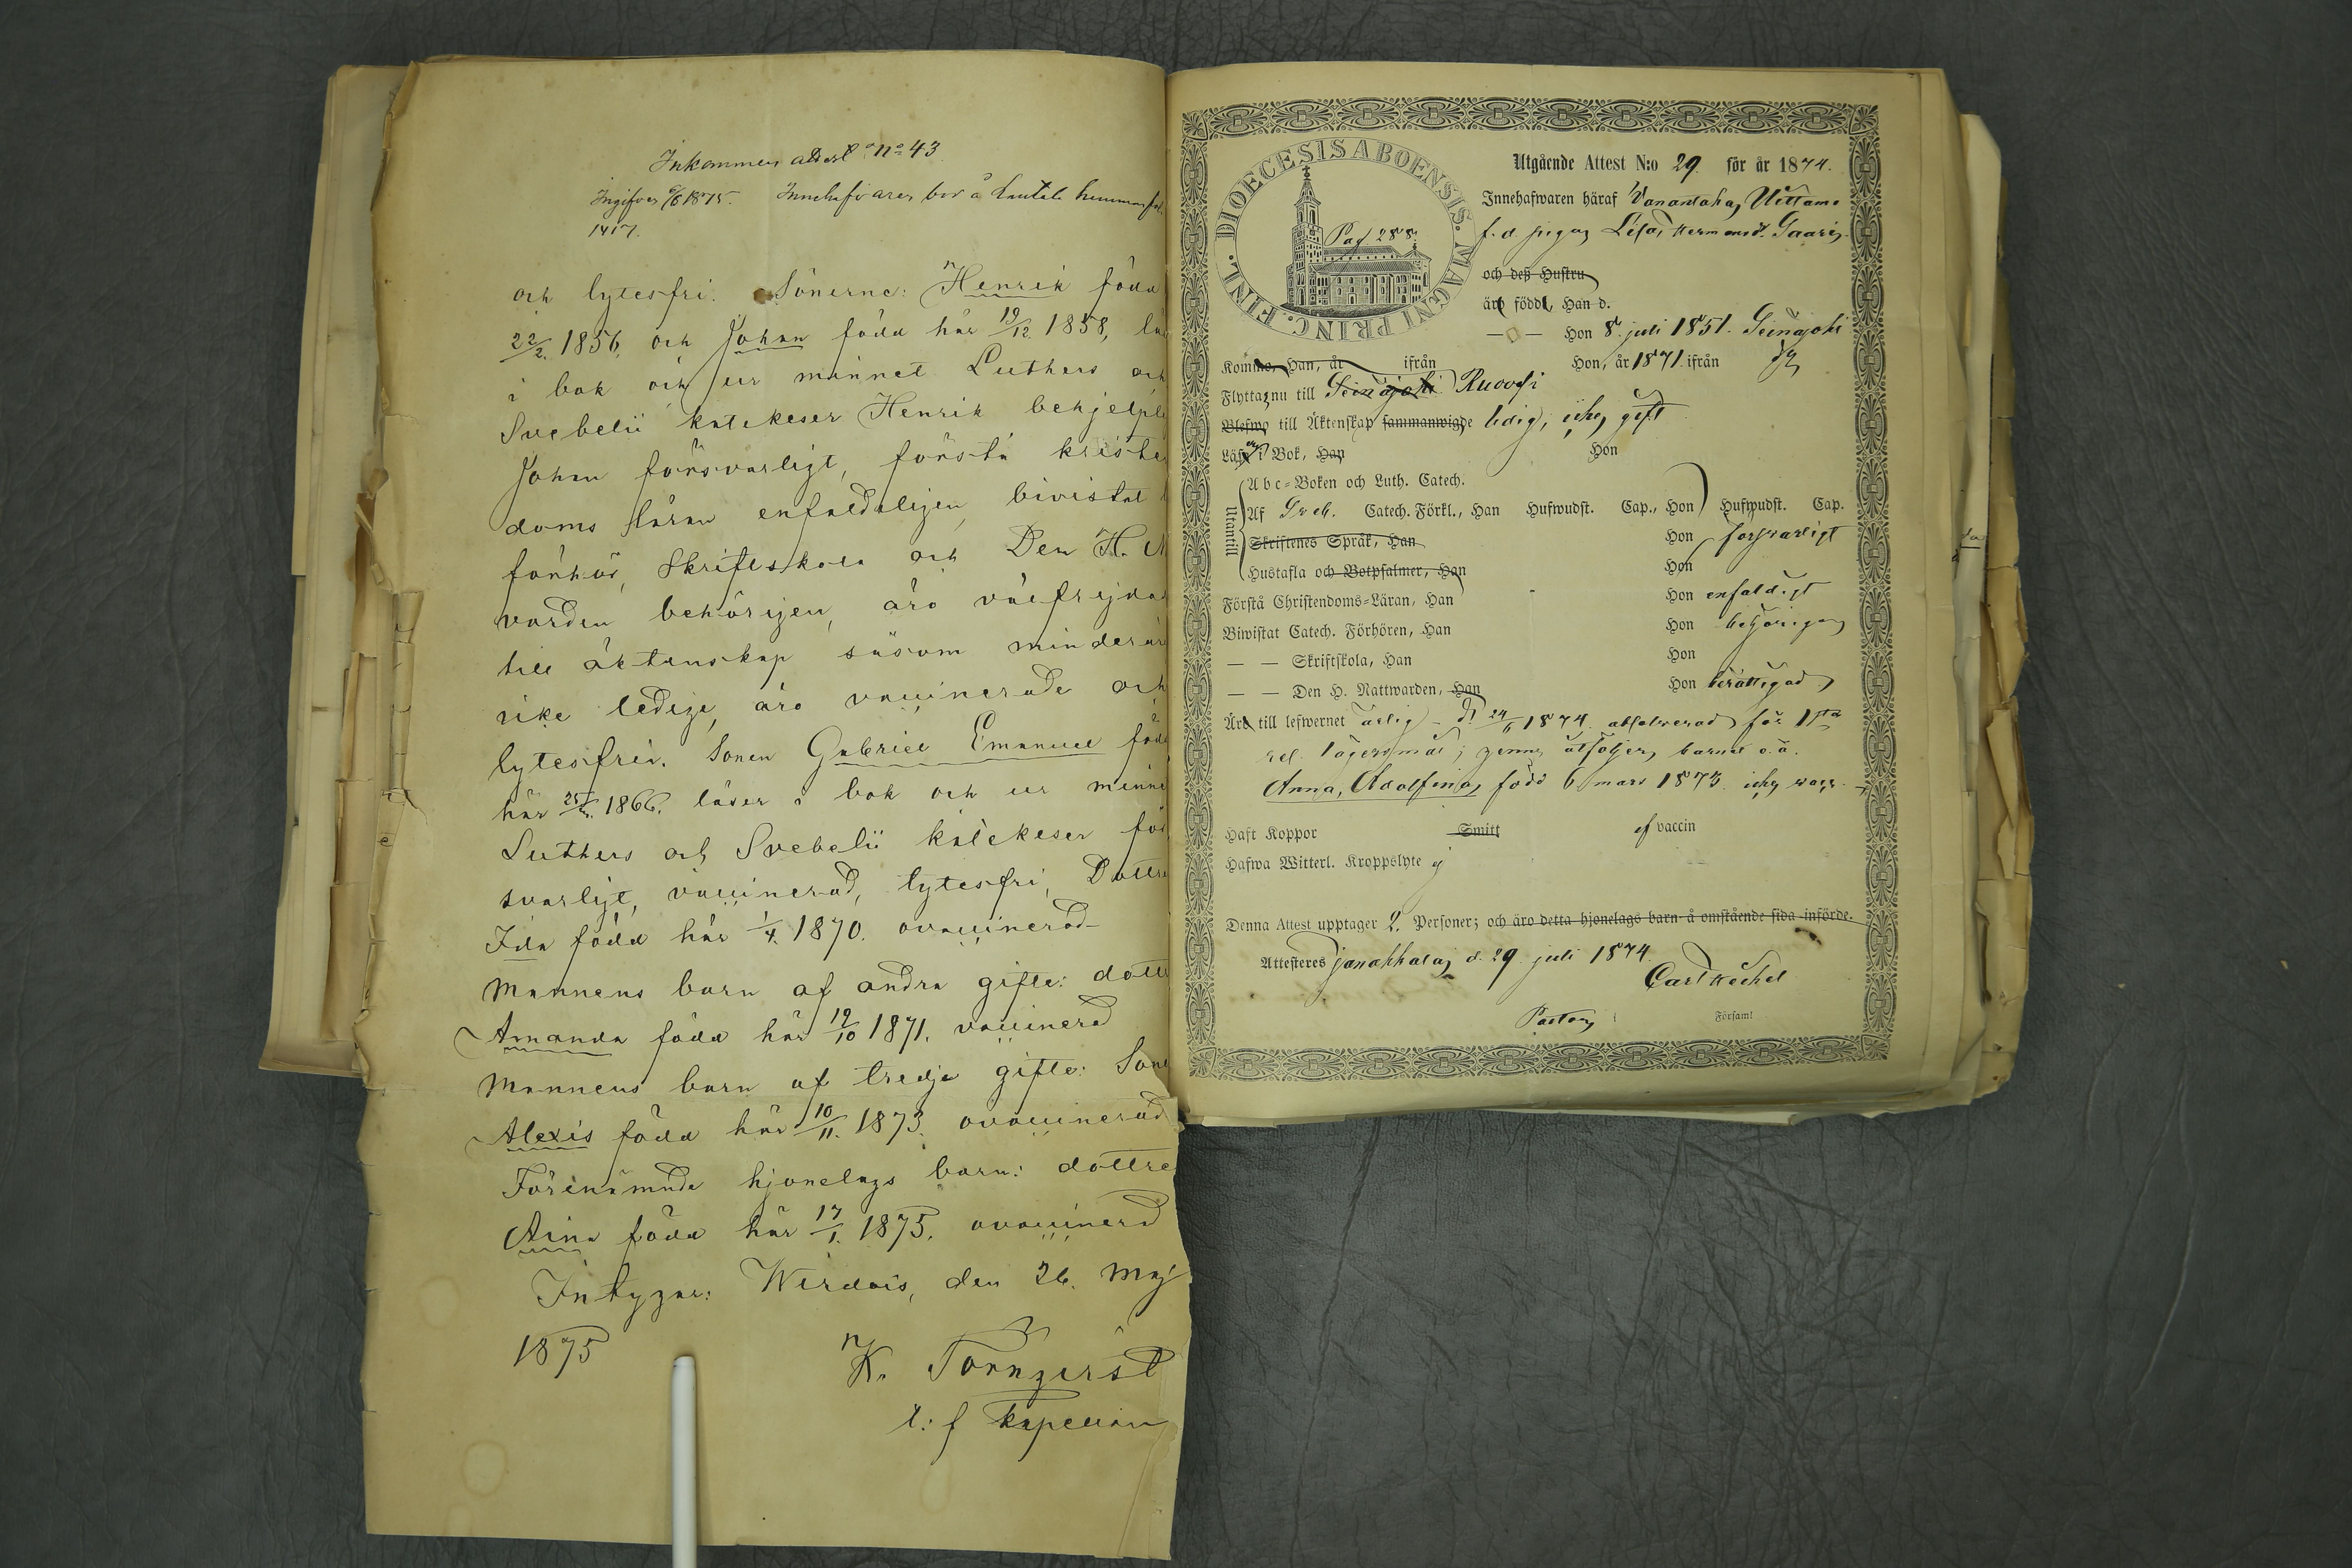 Inkommen attest No 43
Ingifven 9/6 1875. Innehafvaren bor å
1417.
och lytesfri. Sönerne: Henrik född
22/2. 1856, och Johan född här 19/12. 1858, lä
i bok och ur minnet Luthers och
Svebelii katekeser Henrik behjelpli
Johan försvarligt, förstå kriste
doms läran enfaldeligen, bivistat
förhör, Skriftskola och Den H. N
varden behörigen, äro välfrejda
till äktenskap såsom minderår
rike ledige, äro vaccinerade och
lytesfrie. Sonen Gabriel Emanuel föd
här 1866. läser i bok och ur minne
Luthers och Svebelii katekeser för
svarligt, vaccinerad, lytesfri, Dottre
Ida född här 1/4. 1870. ovaccinerad
Mannens barn af andra gifte: dott
Amanda född här 19/10 1871. vaccinerad
Mannens barn af tredje gifte: Sone
Alexis född här 10/11. 1873. ovaccinerad
Förenämnde hjonelags barn: dottre
Aina född här 17/1. 1875. ovaccinerad
Intygar: Wirdois, den 26. Maj
1875
K. Törnqvist
t: f kapellan
DIOECESIS ABOENSIS. MAGNI PRINC. FINL.
Pag 288
Utgående Attest N:o 29 för år 1874.
Innehafwaren häraf Vanantaka, Uittamo
f. d. pigan Lisa, Hermansd. Saari
och deß Hustru
äro född, Han d.
— — Hon 8. juli 1851. Seinäjoki
Komne, Han, år ifrån Hon, år 1871 ifrån
Flyttar nu till Seinäjoki Ruovesi
Blefwo till Äktenskap sammanwigde ledig, icke gift
Läsa i Bok, Han Hon
Utantill
Abc-Boken och Luth. Catech.
Af Sveb. Catech. Förkl., Han Hufwudst. Cap., Hon Hufwudst. Cap.
Skriftenes Språk, Han Hon försvarligt
Hustafla och Botpsalmer, Han Hon
Förstå Christendoms-Läran, Han Hon enfaldigt
Biwistat Catech. Förhören, Han Hon behörigen
— — Skriftskola, Han Hon
— — Den H. Nattwarden, Han Hon berättigad
Äro till lefwernet ärlig - d. 24/6 1874. absolverad för 1sta
lägersmål; henne åtföljer barnet o. ä.
Anna, Adolfina, född 6 mars 1873. icke vacc.
Haft Koppor Smitt ej vaccin
Hafwa Witterl. Kroppslyte ej
Denna Attest upptager 2. Personer; och äro detta hjonelags barn å omstående sida införde.
Attesteras Janakkala d. 29 juli 1874.
Carl Heckel
Pastor i Församl